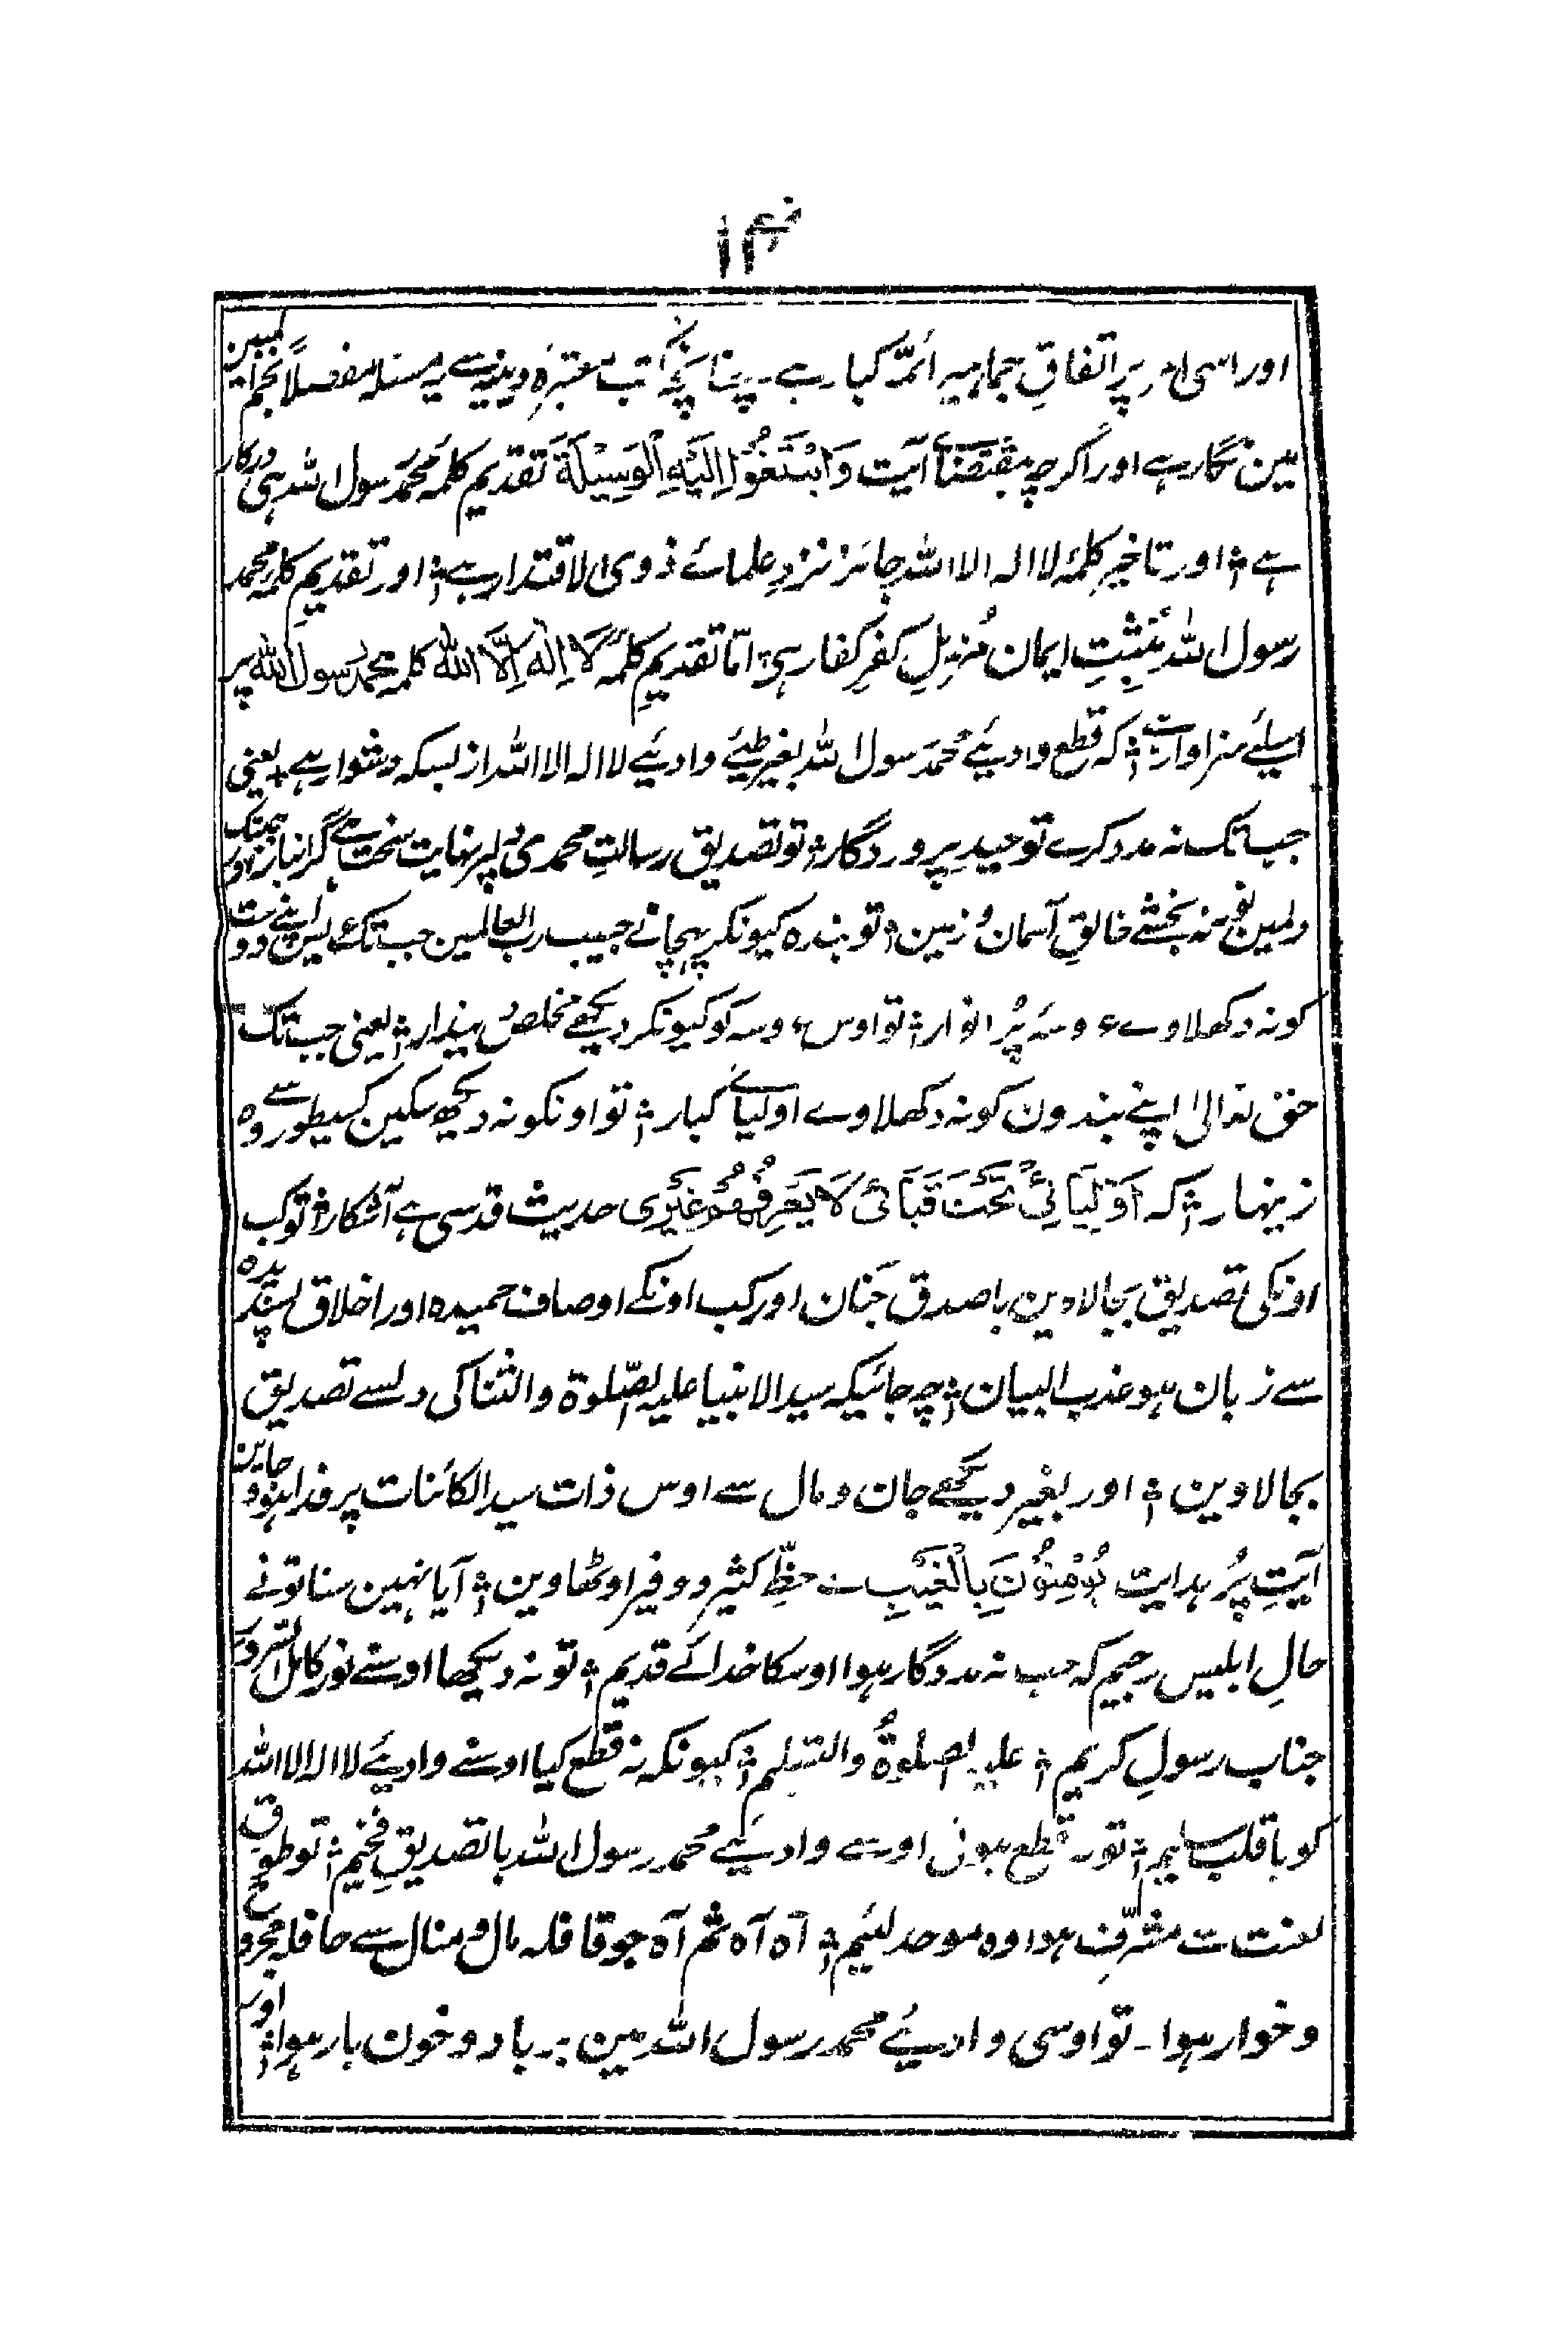 ۱۴
اور اسی امر پر اتفاقِ جماہیر ائمۂ کبار ہے ۔ چنانچہ کتب معتبرہ دینیہ سے یہ مسئلہ مفصلاً نجم المبین
مین نگار ہے اور اگرچہ بمقتضائے آیت وَابْتَغُوْا اِلَيْهِ الْوَسِيْلَةَ تقدیم کلمہ محمد رسول اللہ ہی درکار
ہے ؛ اور تاخیر کلمۂ لا الہ الا اللہ جائز نزدِ علمائے ذوی الاقتدار ہے ؛ اور تقدیمِ کلمہ محمد
رسول اللہ مُثبِتِ ایمان مُزیلِ کفرِ کفار ہی ؛ امّا تقدیمِ کلمۂ لَا اِلٰهَ اِلَّا اللّٰهُ کلمہ محمد رسول اللہ پر
اسلیے سزاوار ہے ؛ کہ قطع وادیئے محمد رسول اللہ بغیر طیئے وادیئے لا الہ الا اللہ از بسکہ دشوار ہے ؛ یعنی
جب تک نہ مدد کرے توحیدِ پروردگار ؛ تو تصدیق رسالتِ محمدی دلپر نہایت سخت ہے گرانبار ؛ جب تک
دلمین نور نہ بخشے خالقِ آسمان و زمین ؛ تو بندہ کیونکر پہچانے حبیب رب العالمین جب تک عریس اپنے دوست
کو نہ دکھلاوے عروسہ پُر انوار ؛ تو اوس عروسہ کو کیونکر دیکھے مخلصِ بیدار ؛ یعنی جب تک
حق تعالیٰ اپنے بندون کو نہ دکھلاوے اولیائے کبار ؛ تو اونکو نہ دیکھ سکین کسیطور سے وہ
زینہار ؛ کہ اَوْلِيَائِيْ تَحْتَ قَبَائِيْ لَا يَعْرِفُهُمْ غَيْرِيْ حدیث قدسی ہے آشکار ؛ تو کب
اونکی تصدیق بجالاوین باصدق جَنان اور کب اونکے اوصاف حمیدہ اور اخلاق پسندیدہ
سے زبان ہو عذب البیان ؛ چہ جائیکہ سید الانبیا علیہ الصّلوۃ والثنا کی دلسے تصدیق
بجالاوین ؛ اور بغیر دیکھے جان و مال سے اوس ذات سید الکائنات پر فدا ہو جاوین
آیتِ پُر ہدایت يُؤْمِنُوْنَ بِالْغَيْبِ سے حظِّ کثیر و وفیر اوٹھاوین ؛ آیا نہین سنا تونے
حالِ ابلیس رجیم کہ جب نہ مددگار ہوا اوسکا خدائے قدیم ؛ تو نہ دیکھا اوسنے نور کامل السرور
جناب رسولِ کریم ؛ علیہ الصلوۃ والتسلیم ؛ کیونکہ نہ قطع کیا اوسنے وادیئے لا الہ الا اللہ
کو باقلب سلیم ؛ تو نہ قطع ہوئی اوسے وادیئے محمد رسول اللہ بالتصدیقِ فخیم ؛ تو طوق
لعنت سے مشرّف ہوا وہ موحد لئیم ؛ آہ آہ ثم آہ جو قافلہ مال و منال سے حافلہ مجروح
و خوار ہوا ۔ تو اوسی وادیئے محمد رسول اللہ مین برباد و خون بار ہوا ؛ اور